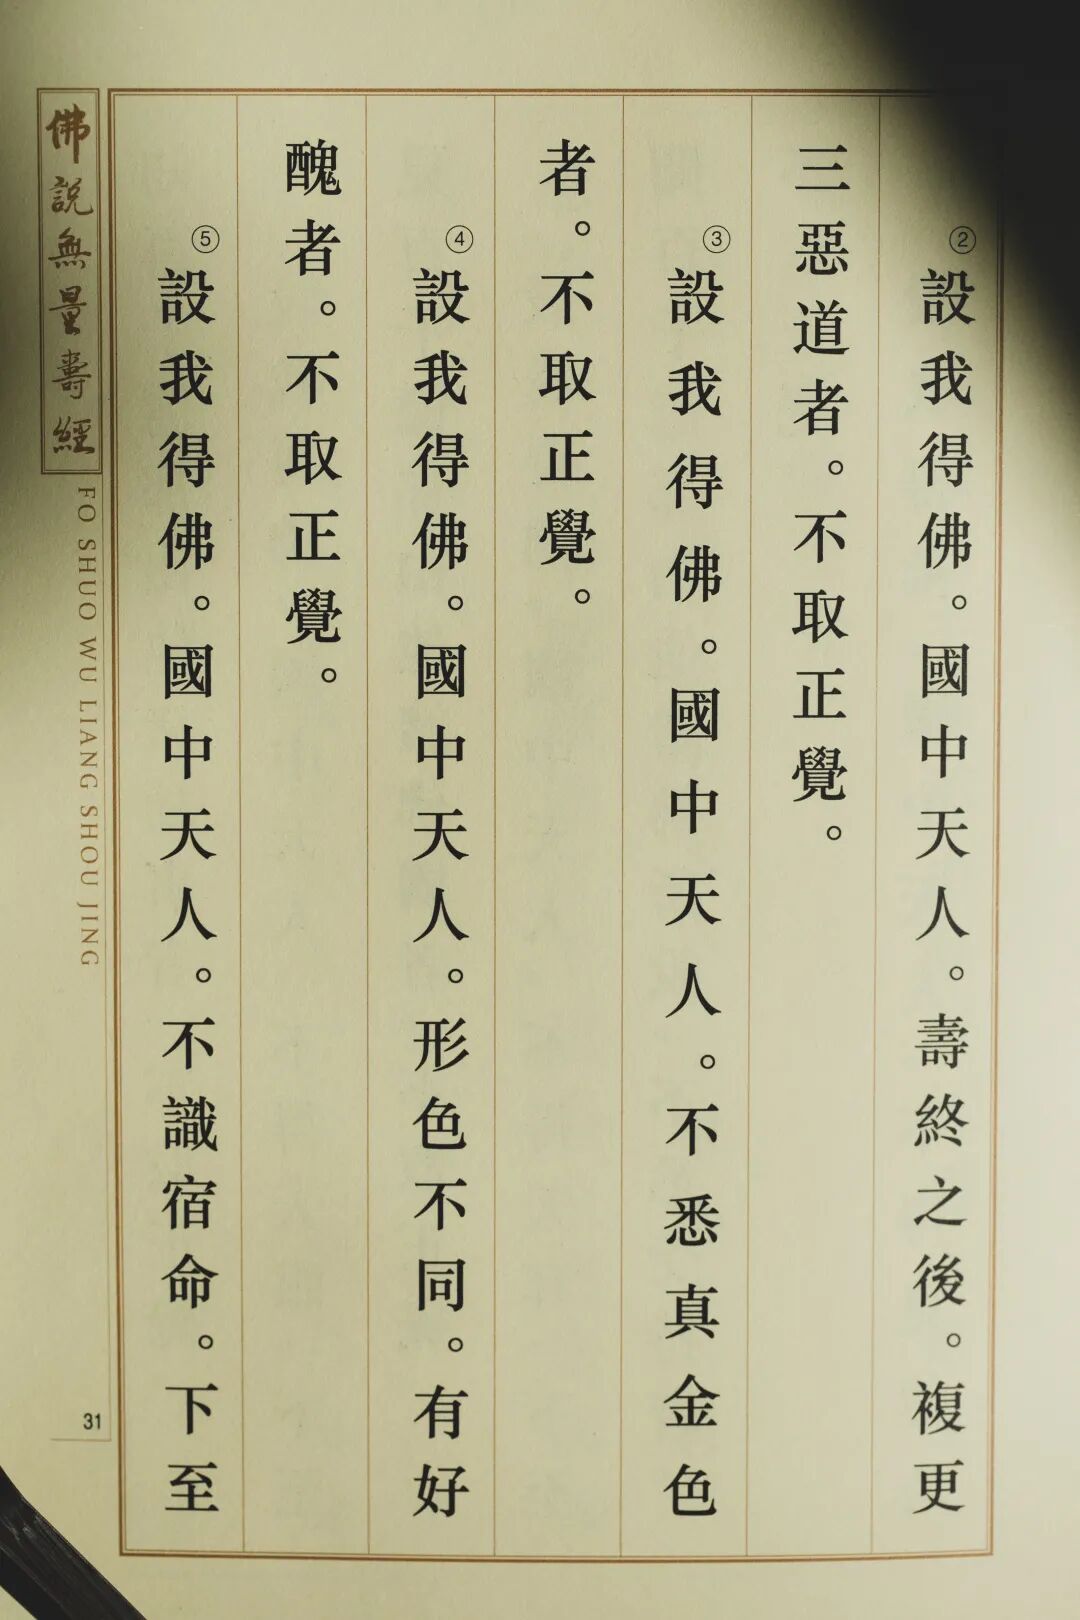 ②設我得佛。國中天人。壽終之後。複更
三惡道者。不取正覺。
③設我得佛。國中天人。不悉真金色
者。不取正覺。
④設我得佛。國中天人。形色不同。有好
醜者。不取正覺。
⑤設我得佛。國中天人。不識宿命。下至
佛說無量壽經
FO SHUO WU LIANG SHOU JING
31